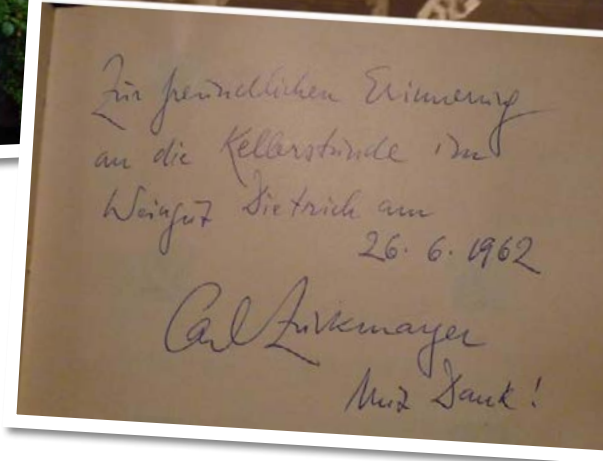 Zur freundlichen Erinnerung
an die Kellerstunde im
Weingut Dietrich am
26. 6. 1962
Carl Zuckmayer
Mit Dank!